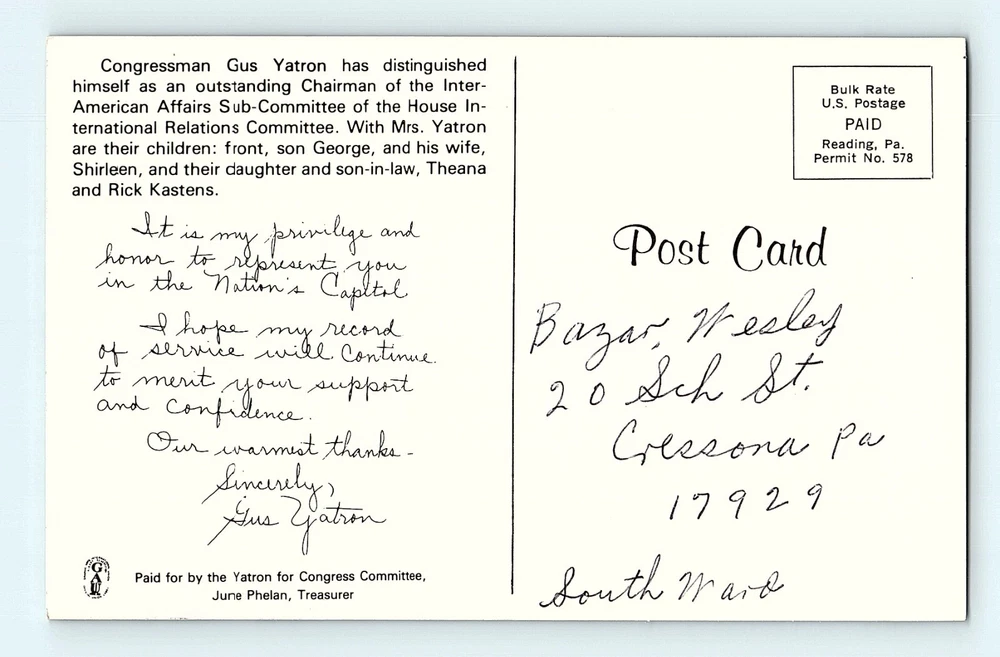 Congressman Gus Yatron has distinguished
himself as an outstanding Chairman of the Inter-
American Affairs Sub-Committee of the House In-
ternational Relations Committee. With Mrs. Yatron
are their children: front, son George, and his wife,
Shirleen, and their daughter and son-in-law, Theana
and Rick Kastens.
It is my privilege and
honor to represent you
in the Nation's Capitol
I hope my record
of service will continue
to merit your support
and confidence.
Our warmest thanks -
Sincerely,
Gus Yatron
Paid for by the Yatron for Congress Committee,
June Phelan, Treasurer
Bulk Rate
U.S. Postage
PAID
Reading, Pa.
Permit No. 578
Post Card
Bazar, Wesley
20 Sch St.
Cressona Pa
17929
South Ward